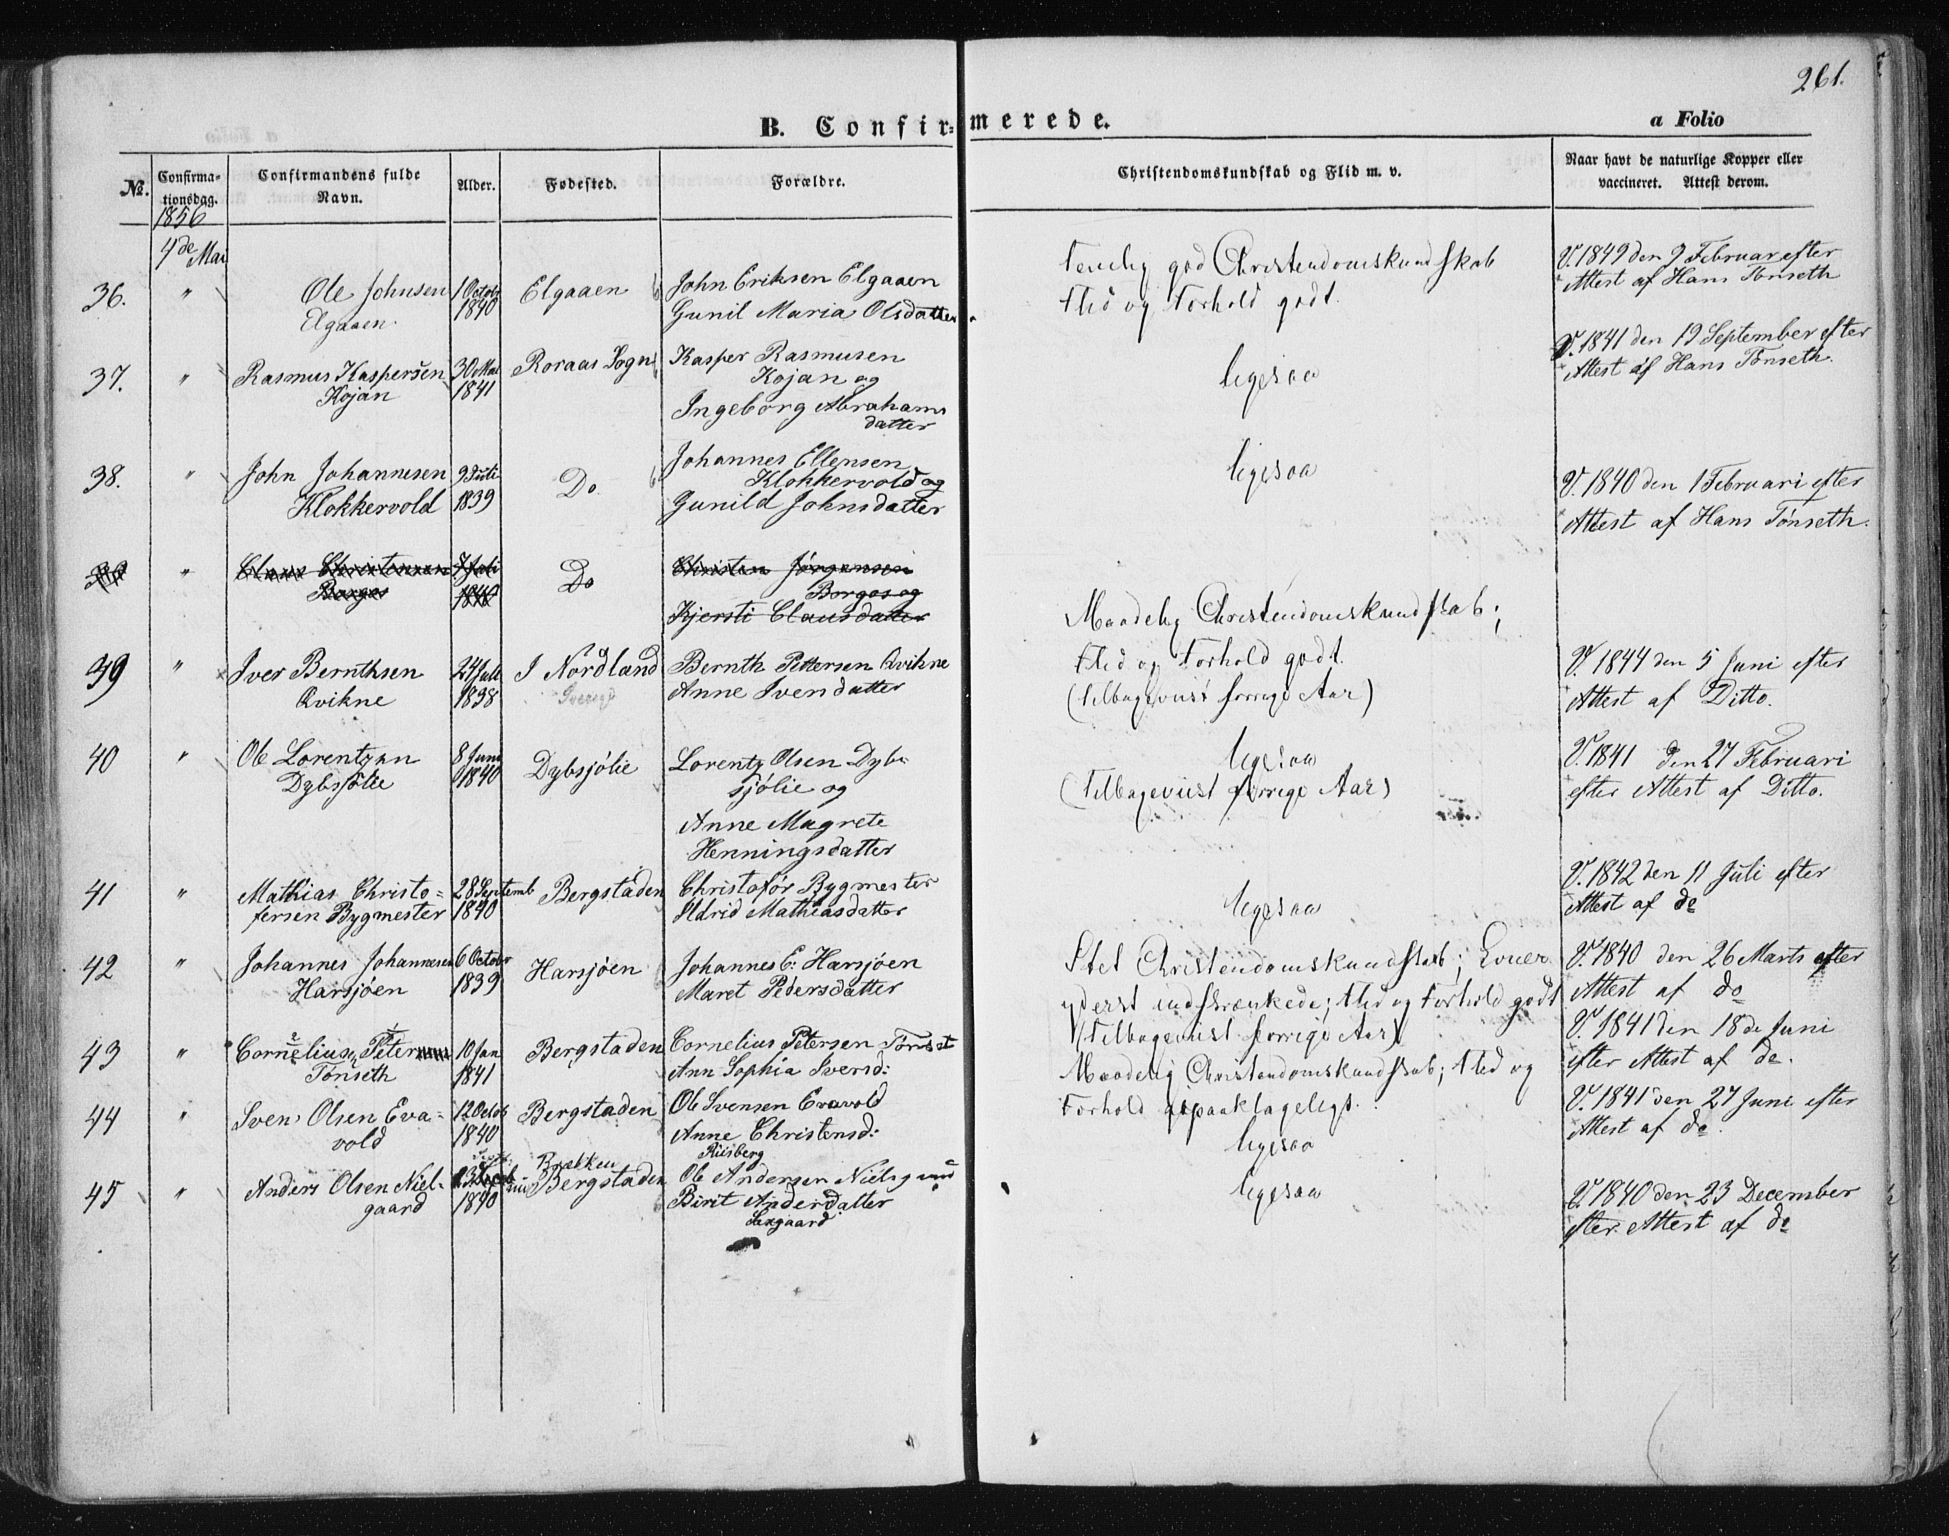 261.
B. Confir= merede.
a Folio
No. Confirma-tionsdag. Confirmandens fulde Navn. Alder. Fødested. Forældre. Christendomskundskab og Flid m. v. Naar havt de naturlige Kopper eller vaccineret. Attest derom.
1856
4de Mai
36. " Ole Johnsen 1 Octobr Elgaaen John Eriksen Elgaaen
Elgaaen. 1840 Gunil Maria Olsdatter.
temlig god Christendomskundskab
Flid og Forhold godt.
V. 1849 den 9 Februar efter
Attest af Hans Tønseth
37. " Rasmus Kaspersen 30 Mai Roraas Sogn Kasper Rasmusen
Kojan 1841 Kojan og
Ingeborg Abrahams
datter
ligesaa
V. 1841 den 19 September efter
Attest af Hans Tønseth.
38. " John Johannesen 9 Juli Do Johannes Ellensen
Klokkervold 1839 Klokkervold og
Gunild Johnsdatter
ligesaa
V. 1840 den 1 Februari efter
Attest af Hans Tønseth.
" Claus Christensen 7 Juli Do Christen Jörgensen
Borgos 1840 Borgos og
Kjersti Clausdatter
39 " Iver Bernthsen 24 Juli I Nordland Bernth Pettersen Qvikne
Qvikne 1838 Anne Iversdatter
Maadelig Christendomskundskab;
Flid og Forhold godt.
(tilbageviist forrige Aar)
V. 1844 den 5 Juni efter
Attest af Ditto.
40 " Ole Lorentzen 8 Juni Dybsjølie Lorentz Olsen Dyb-
Dybsjølie 1840 sjølie og
Anne Magrete
Henningsdatter
ligesaa
(Tilbageviist forrige Aar)
V. 1841 den 27 Februari
efter Attest af Ditto.
41 " Mathias Christo= 28 Septemb Bergstaden Christofór Bygmester
fersen Bygmester 1840 Sldrid Mathiasdatter
ligesaa
V. 1842 den 11 Juli efter
Attest af do
42 " Johannes Johannesen 6 Octobr Harsjöen Johannes E: Harsjöen
Harsjöen 1839 Maret Pedersdatter
Slet Christendomskundskab; Evner
yderst indskrænkede; Flid og Forhold godt
(tilbageviist forrige Aar)
V. 1840 den 26 Marts efter
Attest af do
43 " Cornelius Peter 10 Jan Bergstaden Cornelius Petersen Tønset
Tønseth 1841 Ann Sophia Iversd:
Maadelig Christendomskundskab; Flid og
Forhold upaaklageligt.
V. 1841 den 18de Juni
efter Attest af do.
44 " Sven Olsen Eva- 12 Octob Bergstaden Ole Svensen Evavold
vold 1840 Anne Christensd:
Riisberg
ligesaa
V. 1841 den 27 Juni efter
Attest af do
45 " Anders Olsen Niel- Brækken
Bergstaden Ole Andersen Nielsgaard
gaard 1840 Birit Andersdatter
ligesaa
V. 1840 den 23 December
efter Attest af do